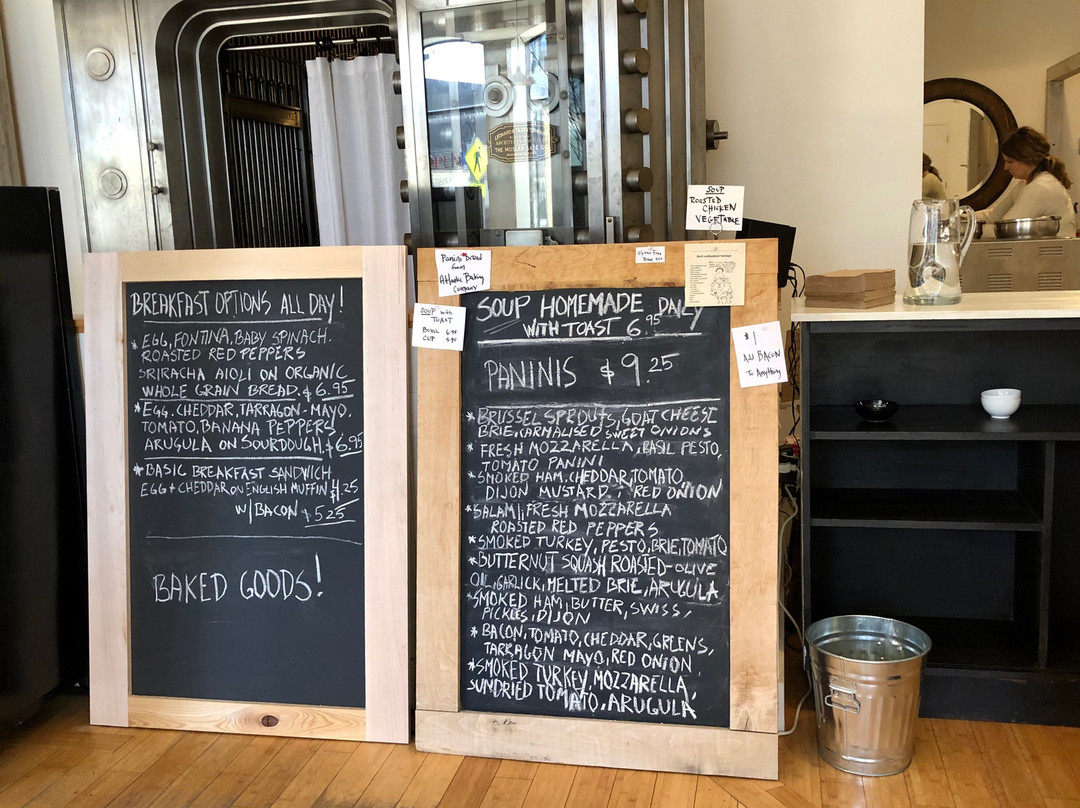 BREAKFAST OPTIONS ALL DAY!
* EGG, FONTINA, BABY SPINACH.
ROASTED RED PEPPERS
SRIRACHA AIOLI ON ORGANIC
WHOLE GRAIN BREAD. $6.95
* EGG. CHEDDAR, TARRAGON-MAYO,
TOMATO, BANANA PEPPERS
ARUGULA ON SOURDOUGH, $6.95
* BASIC BREAKFAST SANDWICH
EGG + CHEDDAR ON ENGLISH MUFFIN $4.25
W/ BACON $5.25
BAKED GOODS!
THE MOSLER SAFE CO.
OPEN
SOUP
ROASTED
CHICKEN
VEGETABLE
Panini Bread
from
Atlantic Baking
Company
SOUP with
TOAST
BOWL 6.95
CUP 5.95
$1
Add BACON
To Anything
SOUP HOMEMADE DAILY
WITH TOAST 6.95
PANINIS $9.25
* BRUSSEL SPROUTS, GOAT CHEESE
BRIE, CARMALISED SWEET ONIONS
* FRESH MOZZARELLA, BASIL PESTO,
TOMATO PANINI
* SMOKED HAM, CHEDDAR, TOMATO,
DIJON MUSTARD, RED ONION
* SALAMI, FRESH MOZZARELLA
ROASTED RED PEPPERS
* SMOKED TURKEY, PESTO, BRIE, TOMATO
* BUTTERNUT SQUASH ROASTED-OLIVE
OIL, GARLICK, MELTED BRIE, ARUGULA
* SMOKED HAM, BUTTER, SWISS,
PICKLES, DIJON
* BACON, TOMATO, CHEDDAR, GREENS,
TARRAGON MAYO, RED ONION
* SMOKED TURKEY, MOZZARELLA,
SUNDRIED TOMATO, ARUGULA